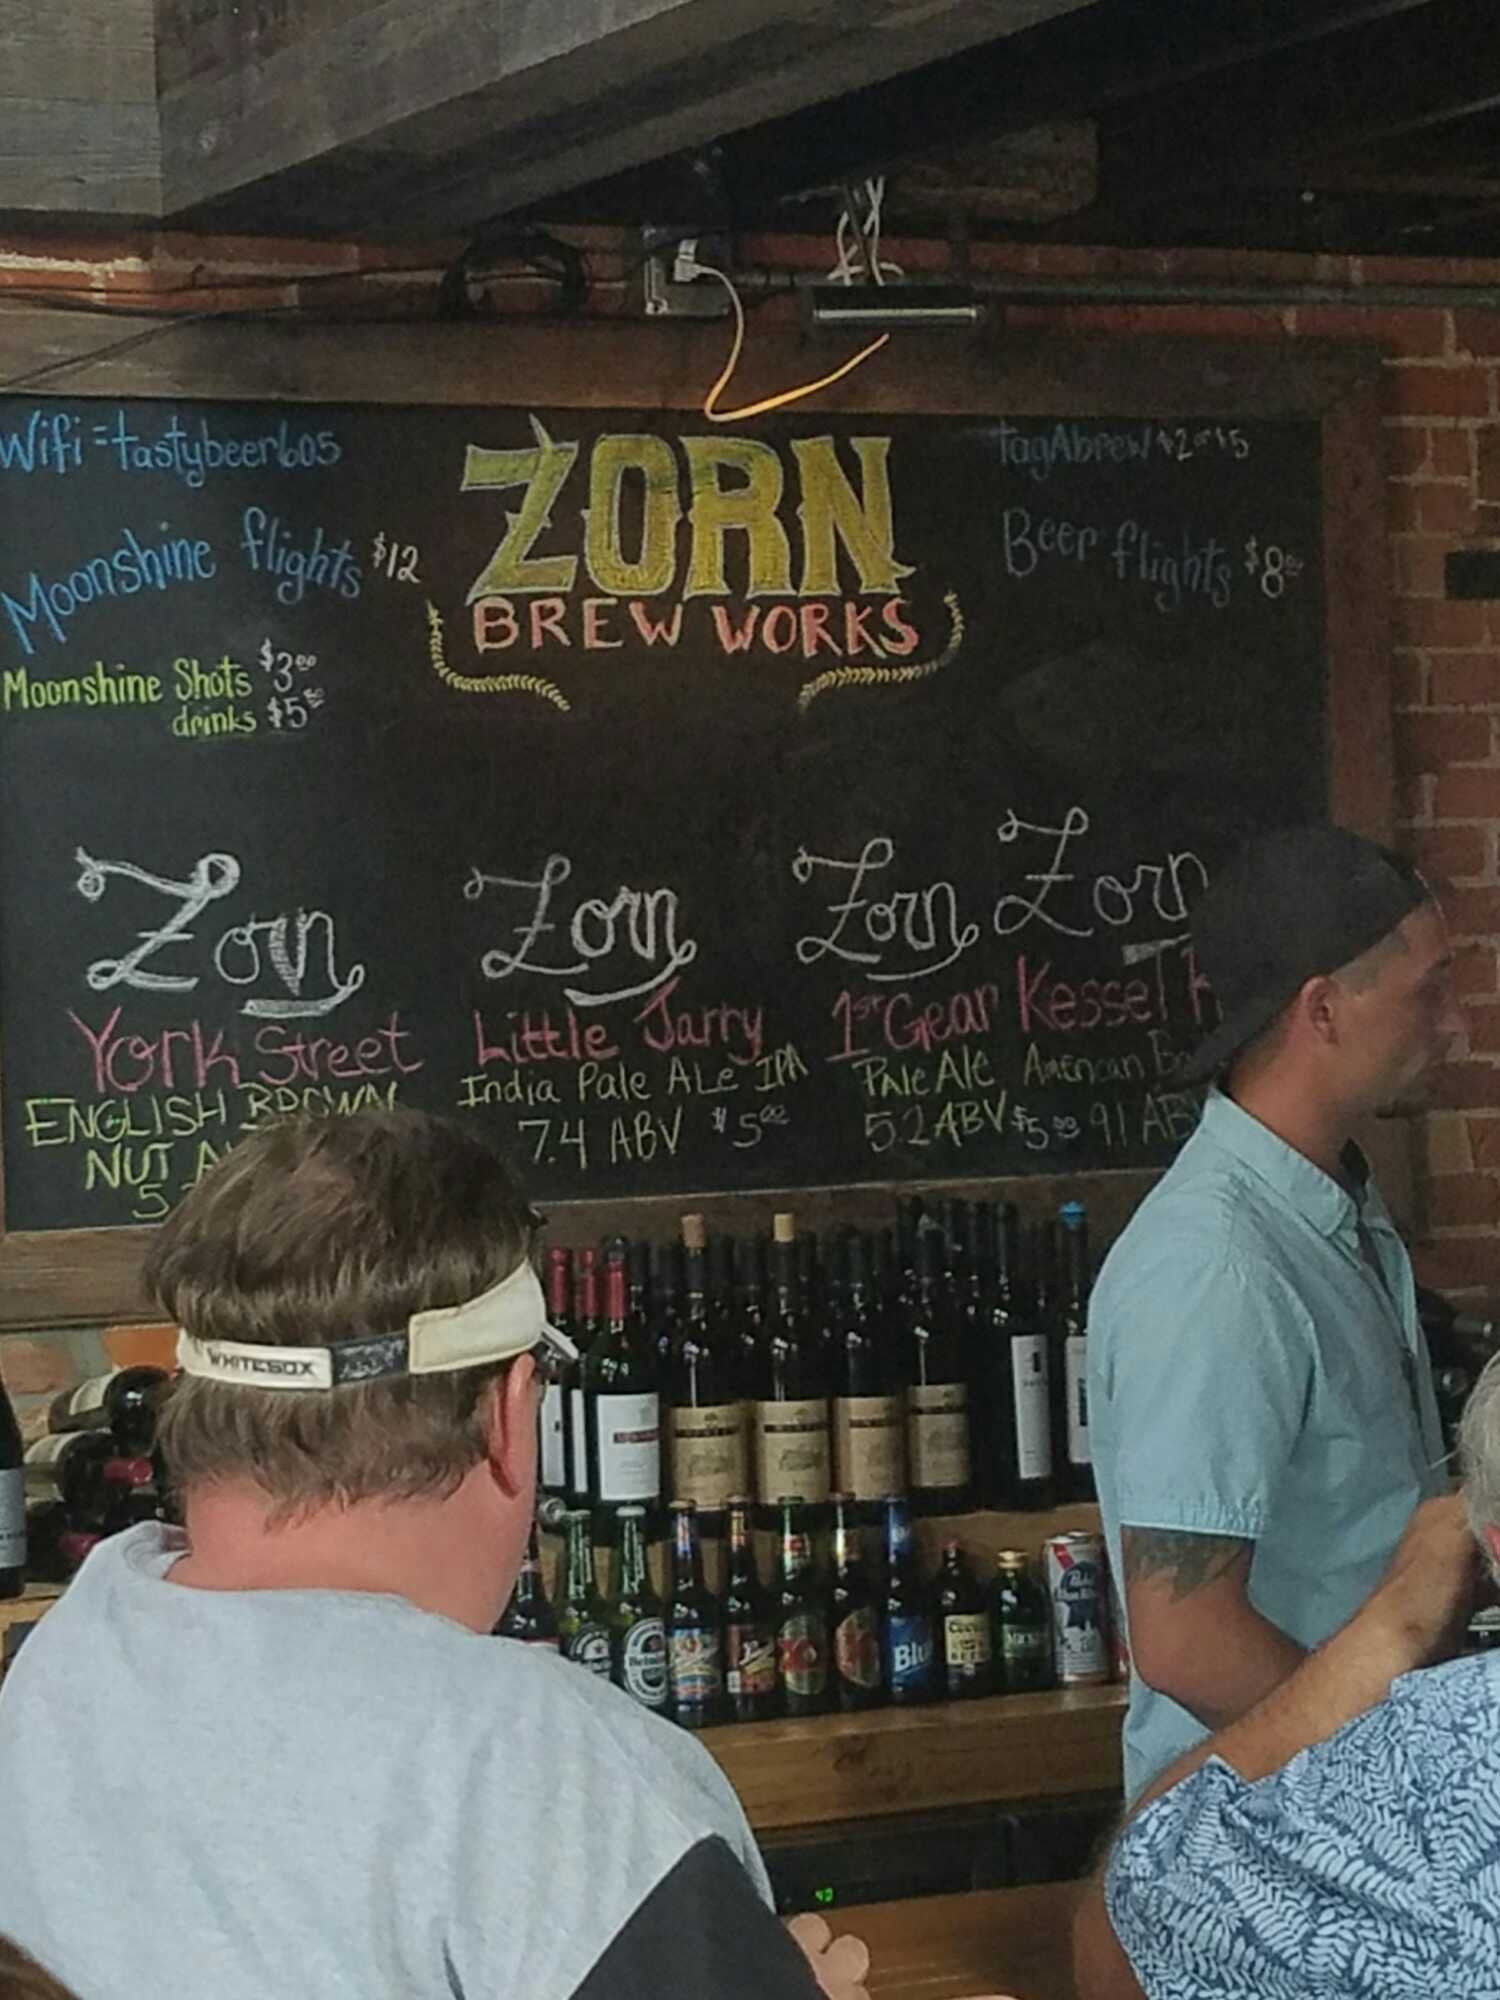 Wifi = tastybeer605
Moonshine flights $12
Moonshine Shots $3.00
drinks $5.50
ZORN
BREW WORKS
TagAbrew $2 or $5
Beer flights $8.00
Zorn
York Street
ENGLISH BROWN
NUT
5
Zorn
Little Jarry
India Pale ALe IPA
7.4 ABV $5.00
Zorn
1st Gear
Pale Ale
5.2 ABV $5.00
Zorn
Kessel
American
9.1 ABV
WHITESOX
Heineken
XX
Blue